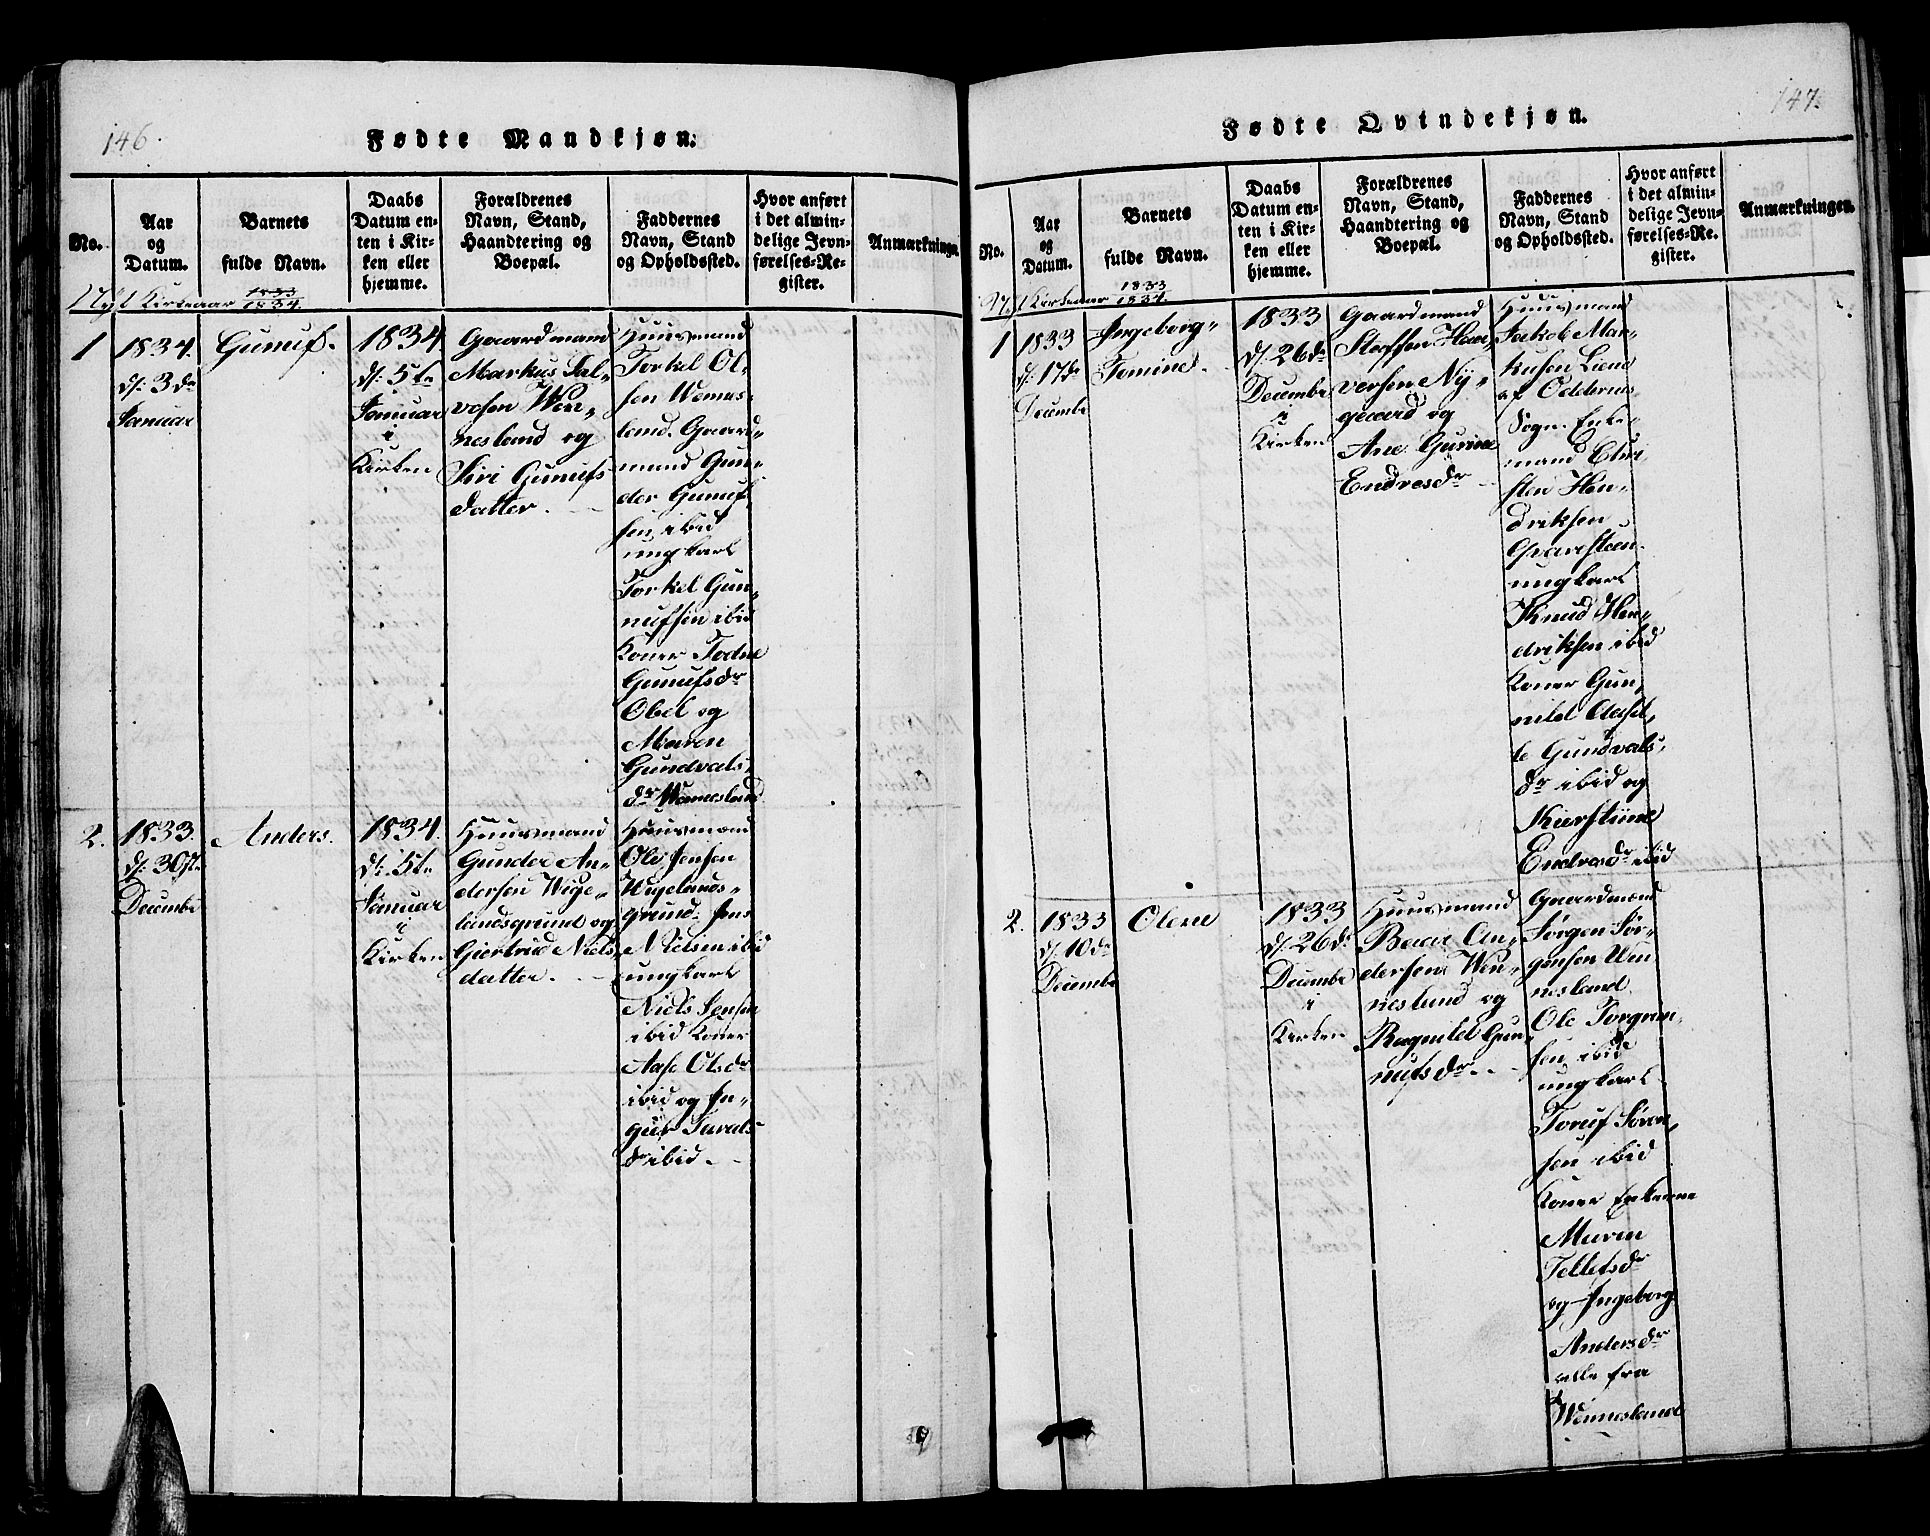 146.
Fødte Mandkjøn.
No.
Aar
og
Datum.
Barnets
fulde Navn.
Daabs
Datum en-
ten i Kir-
ken eller
hjemme.
Forældrenes
Navn, Stand,
Haandtering og
Boepæl.
Faddernes
Navn, Stand
og Opholdssted.
Hvor anført
i det almin-
delige Jevn-
førelses-Re-
gister.
Anmærkninger.
Nyt Kirkeaar 1833
1834.
1
1834.
d: 3de
Januar
Gunuf.
1834
d: 5te
Januar
i
Kirken
Gaardmand
Markus Sal-
vesen Wen-
nesland og
Siri Gunufs
datter.
Huusmand
Torkel Ol-
sen Wennes-
land. Gaard-
mand Gun-
der Gunuf-
sen ibid
ungkarl
Torkel Gun-
nufsen ibid
Koner Todne
Gunufsdr
Obel og
Maren
Gundvals-
dr Wennesland
2.
1833.
d: 30te
Decembr
Anders.
1834.
d: 5te
Januar
i
Kirken
Huusmand
Gunder An-
dersen Wige-
landsgrund og
Giertrud Niels
datter.
Huusmand
Ole Jensen
Wigelands-
grund. Jens
Nielsen ibid
ungkarl
Niels Jensen
ibid Koner
Aase Olsdr
ibid og In-
geb Tarals
dr ibid.
147.
Fødte Qvindekjøn.
No.
Aar
og
Datum.
Barnets
fulde Navn.
Daabs
Datum en-
ten i Kir-
ken eller
hjemme.
Forældrenes
Navn, Stand,
Haandtering og
Boepæl.
Faddernes
Navn, Stand
og Opholdssted.
Hvor anført
i det almin-
delige Jevn-
førelses-Re-
gister.
Anmærkninger.
Nyt Kirkeaar 1833
1834.
1
1833
d: 17de
Decembr
Ingeborg
Tomine.
1833
d: 26de
Decembr
i
Kirken
Gaardmand
Steffen Hal-
versen Ny-
gaard og
Ane Gurine
Endresdr
Huusmand
Jakob Mar-
kusen Liend
af Oddernes
Sogn. Enke-
mand Chri-
sten Hen-
driksen
Gravesteen.
ungkarl
Knud Hen-
driksen ibid
Koner Gun-
nild Aasel-
le Gundvals-
dr ibid og
Kierstine
Endresdr ibid
2.
1833
d: 10de
Decembr
Olene
1833
d: 26de
Decembr
i
Kirken
Huusmand
Baar An-
dersen Wen-
nesland og
Ragnild Gun
nufsdr.
Gaardmand
Jørgen Jør-
gensen Wen
nesland.
Ole Torgrim-
sen ibid
ungkarl
Toruf Søren-
sen ibid
Koner Enkerne
Maren
Tellefsdr
og Ingeborg
Andersdr
alle fra
Wennesland